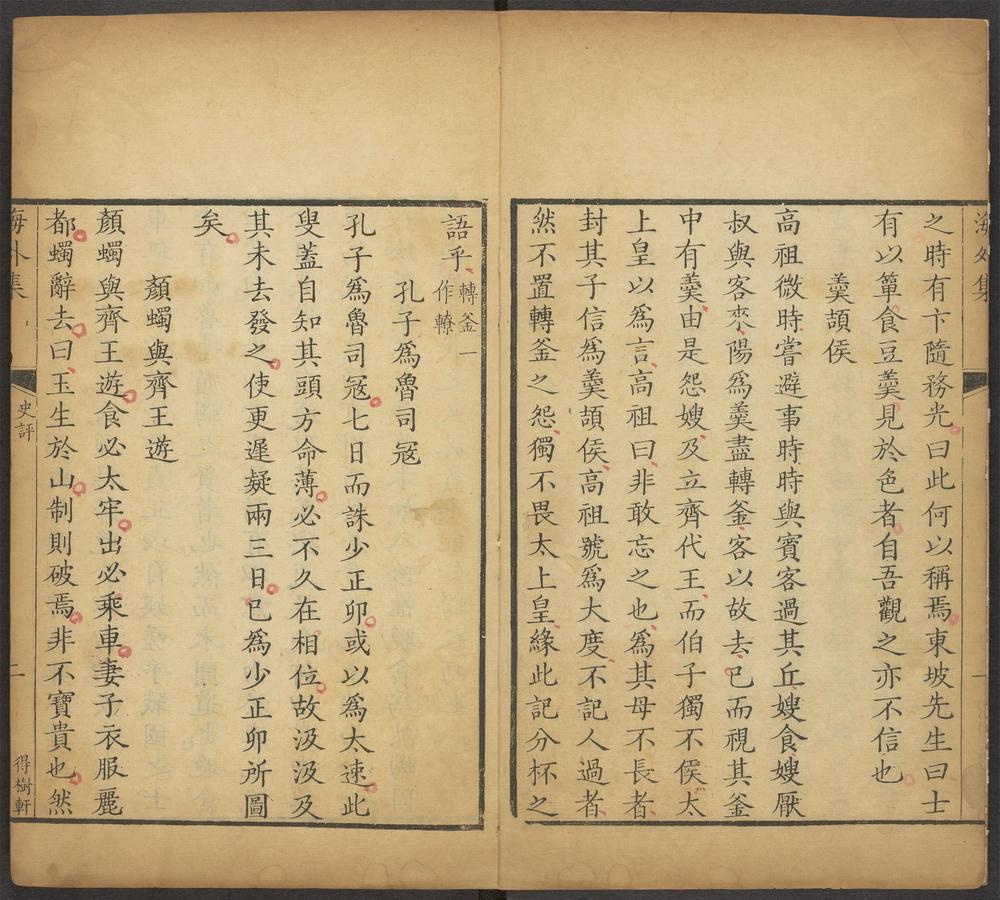 海外集
一
之時有卞隨務光曰此何以稱焉東坡先生曰士
有以簞食豆羹見於色者自吾觀之亦不信也
羹頡侯
高祖微時嘗避事時時與賓客過其丘嫂食嫂厭
叔與客來陽為羹盡轉釜客以故去已而視其釜
中有羹由是怨嫂及立齊代王而伯子獨不侯太
上皇以為言高祖曰非敢忘之也為其母不長者
封其子信為羹頡侯高祖號為大度不記人過者
然不置轉釜之怨獨不畏太上皇緣此記分杯之
語乎轉釜一作轑
孔子為魯司冦
孔子為魯司冦七日而誅少正卯或以為太速此
叟蓋自知其頭方命薄必不久在相位故汲汲及
其未去發之使更遲疑兩三日已為少正卯所圖
矣
顏蠋與齊王遊
顏蠋與齊王遊食必太牢出必乘車妻子衣服麗
都蠋辭去曰玉生於山制則破焉非不寶貴也然
海外集
史評
二
得樹軒